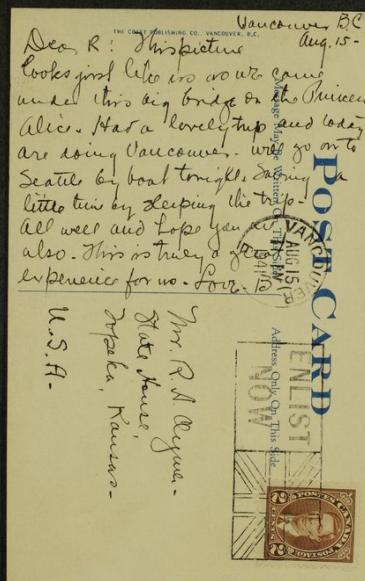 Vancouver B.C.
THE COAST PUBLISHING CO., VANCOUVER, B.C.
Aug. 15-
Dear R: This picture
looks just like us as we came
under this big bridge on the Princess
Alice. Had a lovely trip and today
are doing Vancouver. Will go on to
Seattle by boat tonight. Saving a
little time by sleeping the trip-
All well and hope you are
also. This is truly a
experience for us - Love. B
POST CARD
Message May Be Written On This Side
Address Only On This Side
VANCOUVER
AUG 15
1941
B.C.
ENLIST
NOW
POSTES CANADA POSTAGE
2 CENTS 2
Mr. R. A. Clymer-
State House,
Topeka, Kansas-
U.S.A-